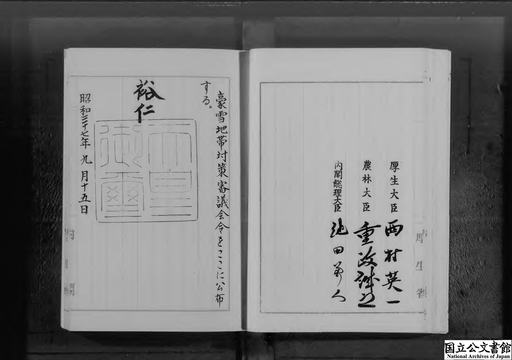 豪雪地帯対策審議会令をここに公布
する。
裕仁
天皇
御璽
昭和三十七年九月十五日
厚生大臣 西村英一
農林大臣 重政誠之
内閣総理大臣 池田勇人
国立公文書館
National Archives of Japan